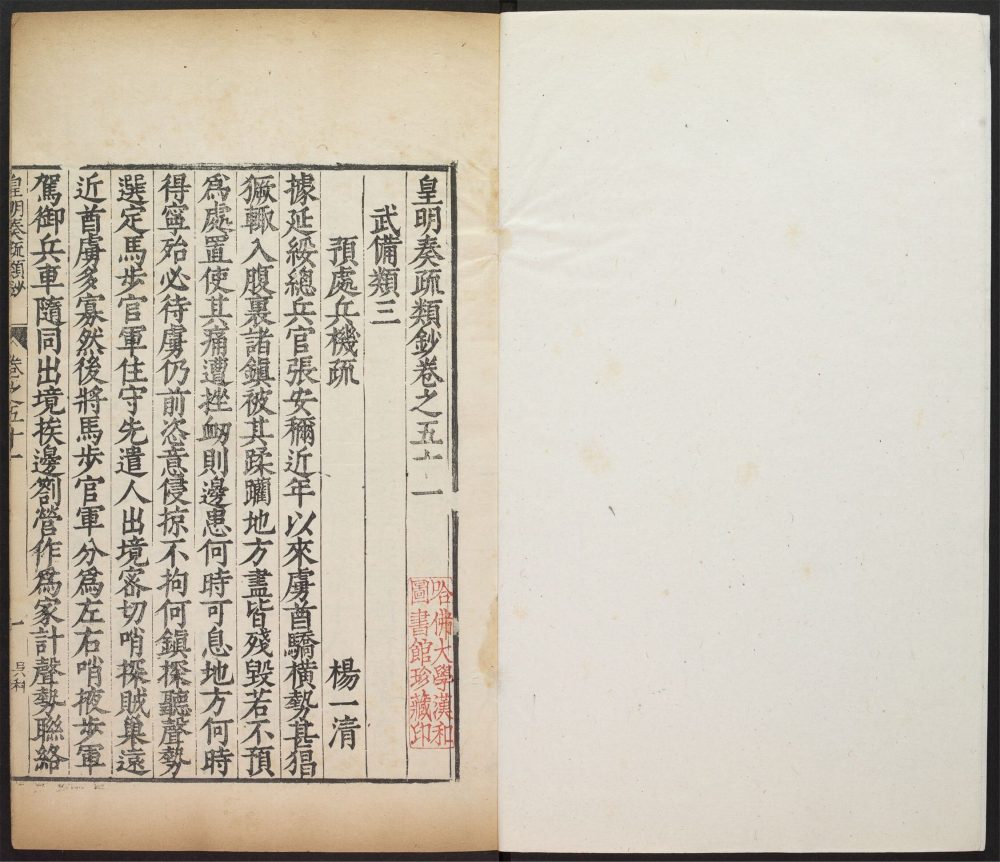 皇明奏疏類鈔卷之五十一
哈佛大學漢和
圖書館珍藏印
武備類三
預處兵機疏
楊一清
據延綏總兵官張安稱近年以來虜酋驕橫勢甚猖
獗輙入腹裏諸鎮被其蹂躪地方盡皆殘毀若不預
爲處置使其痛遭挫衂則邊患何時可息地方何時
得寧殆必待虜仍前恣意侵掠不拘何鎮探聽聲勢
選定馬步官軍住守先遣人出境密切哨探賊巢遠
近酋虜多寡然後將馬步官軍分爲左右哨掖步軍
駕御兵車隨同出境挨邊劄營作爲家計聲勢聯絡
皇明奏疏類鈔
卷之五十一
一